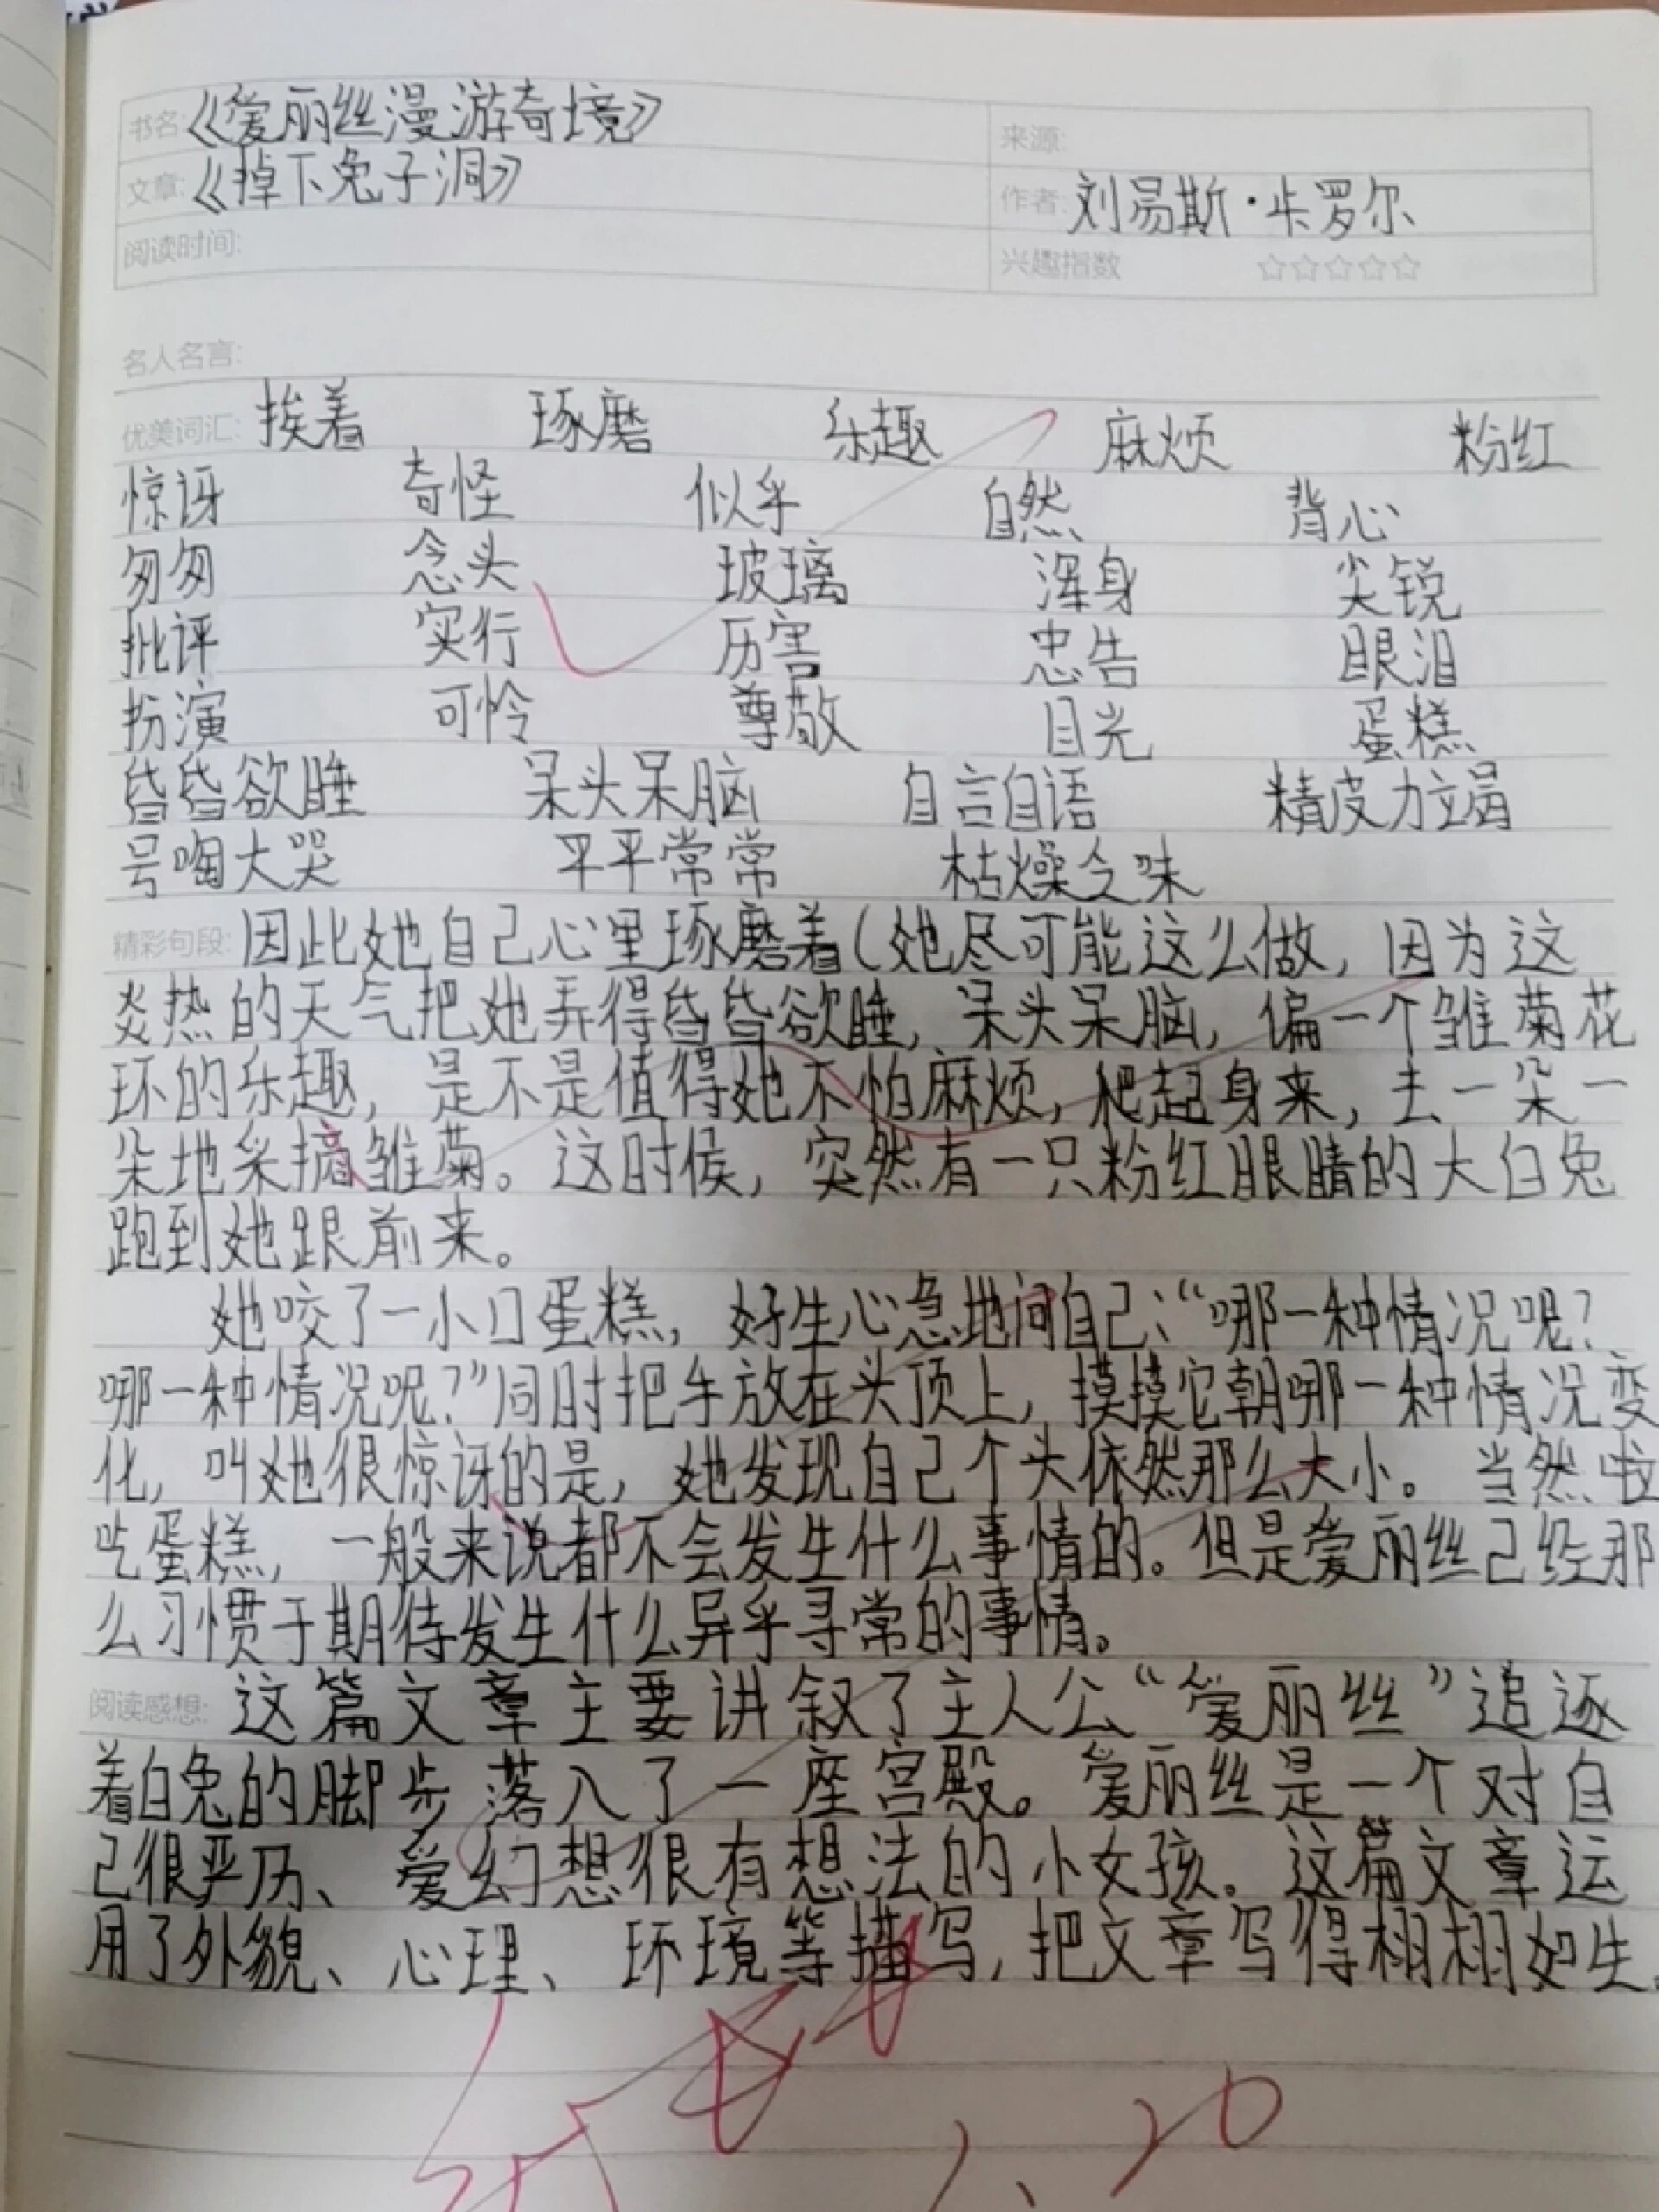 书名:《爱丽丝漫游奇境》
来源:
文章:《掉下兔子洞》
作者: 刘易斯·卡罗尔
阅读时间:
兴趣指数 ☆☆☆☆☆
名人名言:
优美词汇: 挨着 琢磨 乐趣 麻烦 粉红
惊讶 奇怪 似乎 自然 背心
匆匆 念头 玻璃 浑身 尖锐
批评 实行 厉害 忠告 眼泪
扮演 可怜 尊敬 目光 蛋糕
昏昏欲睡 呆头呆脑 自言自语 精疲力竭
号啕大哭 平平常常 枯燥乏味
精彩句段: 因此她自己心里琢磨着(她尽可能这么做,因为这
炎热的天气把她弄得昏昏欲睡,呆头呆脑,偏一个雏菊花
环的乐趣,是不是值得她不怕麻烦,爬起身来,去一朵一
朵地采摘雏菊。这时候,突然有一只粉红眼睛的大白兔
跑到她跟前来。
她咬了一小口蛋糕,好生心急地问自己:“哪一种情况呢?
哪一种情况呢?”同时把手放在头顶上,摸摸它朝哪一种情况变
化,叫她很惊讶的是,她发现自己个头依然那么大小。当然啦
吃蛋糕,一般来说都不会发生什么事情的。但是爱丽丝已经那
么习惯于期待发生什么异乎寻常的事情。
阅读感想: 这篇文章主要讲叙了主人公“爱丽丝”追逐
着白兔的脚步落入了一座宫殿。爱丽丝是一个对自
己很严历、爱幻想很有想法的小女孩。这篇文章运
用了外貌、心理、环境等描写,把文章写得栩栩如生。